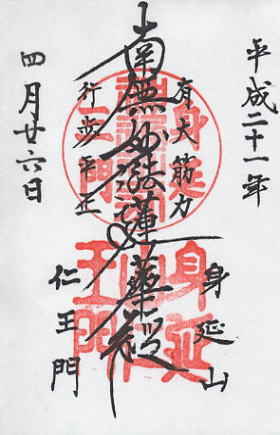 平成二十一年
有大筋力
身延山
南無妙法蓮華経
行歩平正
仁王門
四月廿六日
身延
王門
身延
王門